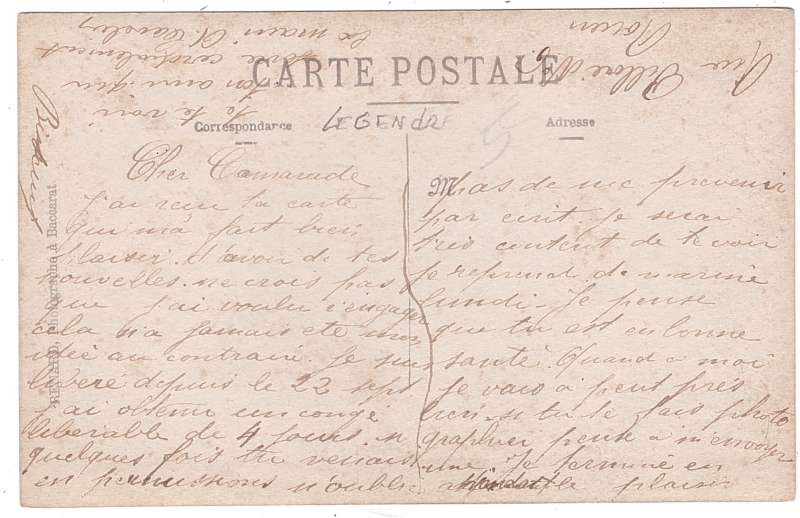 CARTE POSTALE
Correspondance
LEGENDRE
Adresse
Cher Camarade
J'ai reçu ta carte
qui m'a fait bien
plaisir. d'avoir de tes
nouvelles. ne crois pas
que j'ai voulu l'engager
cela n'a jamais ete mon
idée au contraire. Je suis
libéré depuis le 22 sept
j'ai obtenu un congé
liberable de 4 jours. si
quelques fois tu venais
en permissions n'oublie
pas de me prevenir
par ecrit je serai
très content de te voir
je reprend de marine
lundi. Je pense
que tu est en bonne
santé. Quand a moi
je vais a peut près
bien. si tu te fais photo
graphier pense a m'envoyer
une. Je termine en
attendant le plaisir
de te voir
ton ami qui
serre cordialement
la main
Rue
Rouen
RENARD, Photographe à Baccarat